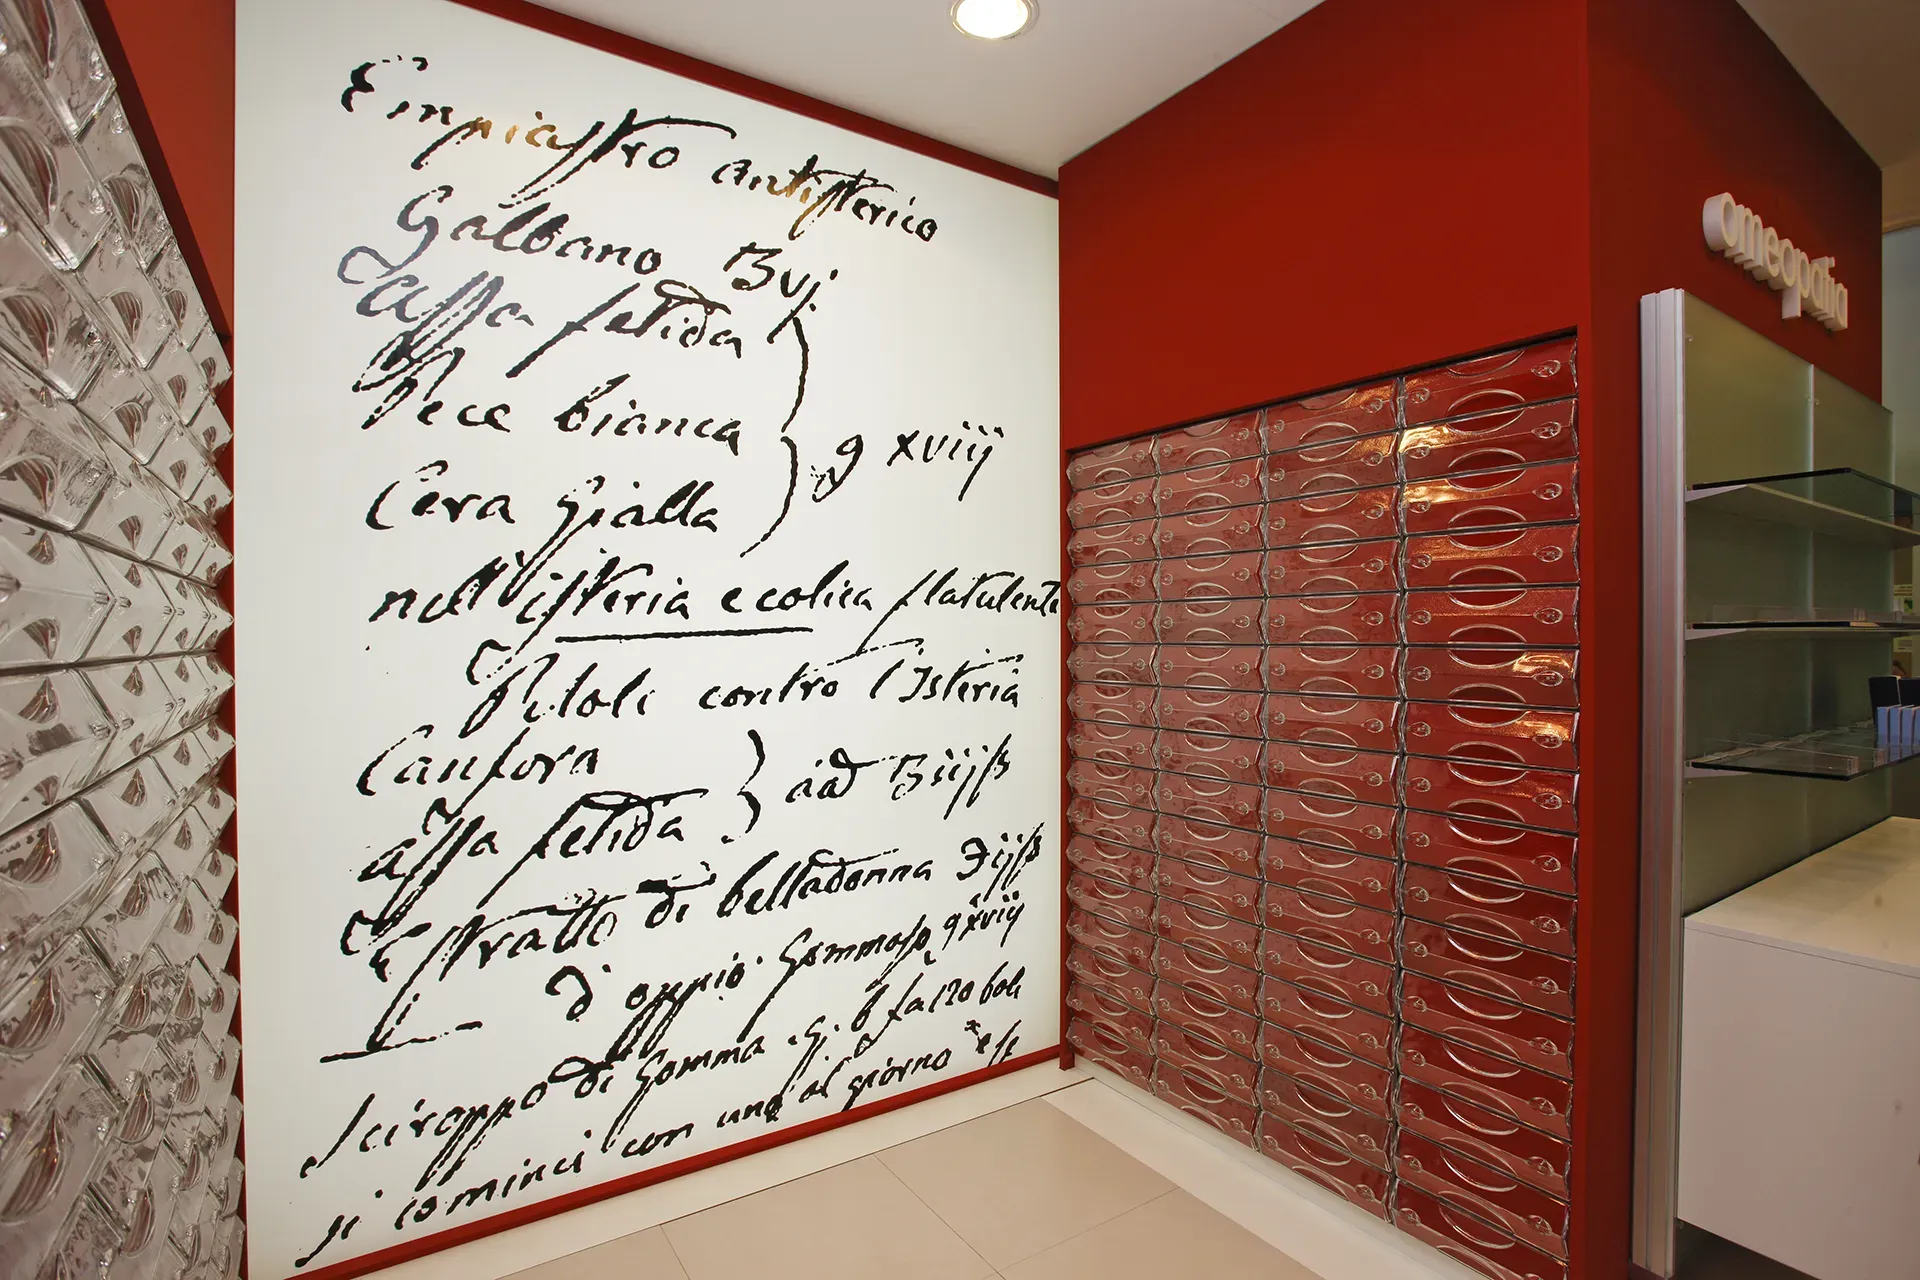 Empiastro antisterico
Galbano ʒvj.
Assa fetida
Pece bianca
Cera Gialla
g xviij
nell'isteria e colica flatulente
Piloli contro l'Isteria
Canfora
assa fetida
aad ʒiijß
Estratto di belladonna ℈ijß
d'oppio Gommoso gxviij
Sciroppo di Gomma . Si fa 120 boli
si cominci con uno al giorno
omeopatia